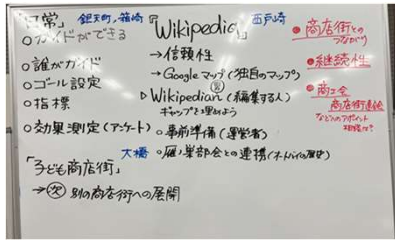 「日常」 銀天町、箱崎
○ガイドができる
○誰がガイド
○ゴール設定
○指標
○効果測定(アンケート)
大橋
「子ども商店街」
→次 別の商店街への展開
『Wikipedia』 西戸崎
→信頼性
→Googleマップ(独自のマップ)
▷Wikipedian(編集する人)
ギャップを埋めよう
○事前準備(運営者)
○雁ノ巣部会との連携(オートバイの歴史)
●商店街との
つながり
●継続性
●商工会
商店街連合会
などへのアポイント